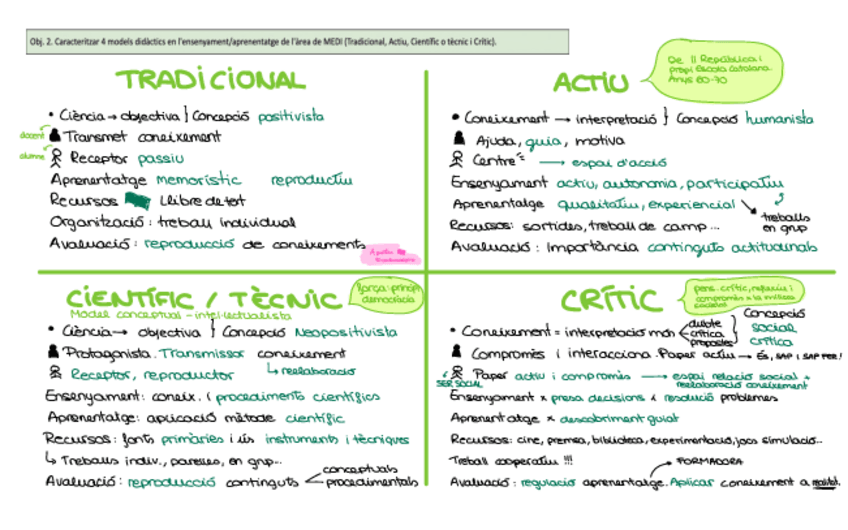 Obj. 2. Caracteritzar 4 models didàctics en l'ensenyament/aprenentatge de l'àrea de MEDI (Tradicional, Actiu, Científic o tècnic i Crític).
TRADICIONAL
• Ciència → objectiva } Concepció positivista
docent Transmet coneixement
alumne Receptor passiu
Aprenentatge memorístic reproductiu
Recursos Llibre de tot
Organització: treball individual
Avaluació: reproducció de coneixements
ACTIU
De II República i
propi Escola Catalana.
Anys 60-70
• Coneixement → interpretació } Concepció humanista
Ajuda, guia, motiva
Centre → espai d'acció
Ensenyament actiu, autonomia, participatiu
Aprenentatge qualitatiu, experiencial
treballs
en grup
Recursos: sortides, treball de camp...
Avaluació: Importància continguts actitudinals
CIENTÍFIC / TÈCNIC
força: principi
democràcia
Model conceptual - intel·lectualista
• Ciència → objectiva } Concepció Neopositivista
Protagonista. Transmissor coneixement
Receptor, reproductor ↳ reelaboració
Ensenyament: coneix. i procediments científics
Aprenentatge: aplicació mètode científic
Recursos: fonts primàries i ús instruments i tècniques
↳ Treballs indiv., parelles, en grup...
Avaluació: reproducció continguts < conceptuals
procedimentals
CRÍTIC
pens. crític, reflexiu i
compromès a la millora
• Coneixement = interpretació món < dubte
crítica
propostes } Concepció
social
crítica
Compromès i interacciona. Paper actiu → És, SAP i SAP FER!
Paper actiu i compromès → espai relació social +
reelaboració coneixement
SER SOCIAL
Ensenyament x presa decisions i resolució problemes
Aprenentatge x descobriment guiat
Recursos: cine, premsa, biblioteca, experimentació, jocs simulació...
Treball cooperatiu !!!
FORMADORA
Avaluació: regulació aprenentatge. Aplicar coneixement a realitat.